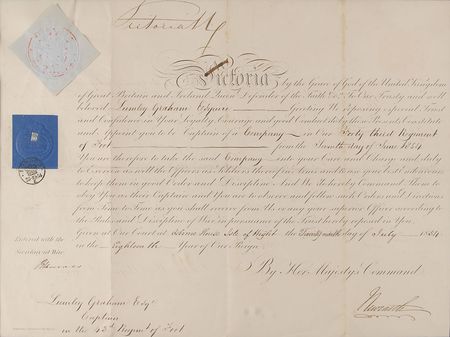 Victoria R
Victoria by the Grace of God of the United Kingdom
of Great Britain and Ireland Queen Defender of the Faith &c. To Our Trusty and well
beloved Lumley Graham Esquire Greeting We reposing especial Trust
and Confidence in Your Loyalty, Courage and good Conduct do by these Presents Constitute
and Appoint you to be Captain of a Company in Our Forty third Regiment
of Foot from the Seventh day of June 1854
You are therefore to take the said Company into your Care and Charge and duly
to Exercise as well the Officers as Soldiers thereof in Arms and to use your best Endeavours
to keep them in good Order and Discipline And We do hereby Command them to
Obey you as their Captain and You are to observe and follow such Orders and Directions
from Time to Time as you shall receive from Us or any your superior Officer according to
the Rules and Discipline of War in pursuance of the Trust hereby reposed in You
Given at Our Court at Osborne House Isle of Wight the day of July 1854
in the Eighteenth Year of Our Reign
Entered with the
Secretary at War
By Her Majesty's Command
Lumley Graham Esqr
Captain
in the 43d Regimt of Foot